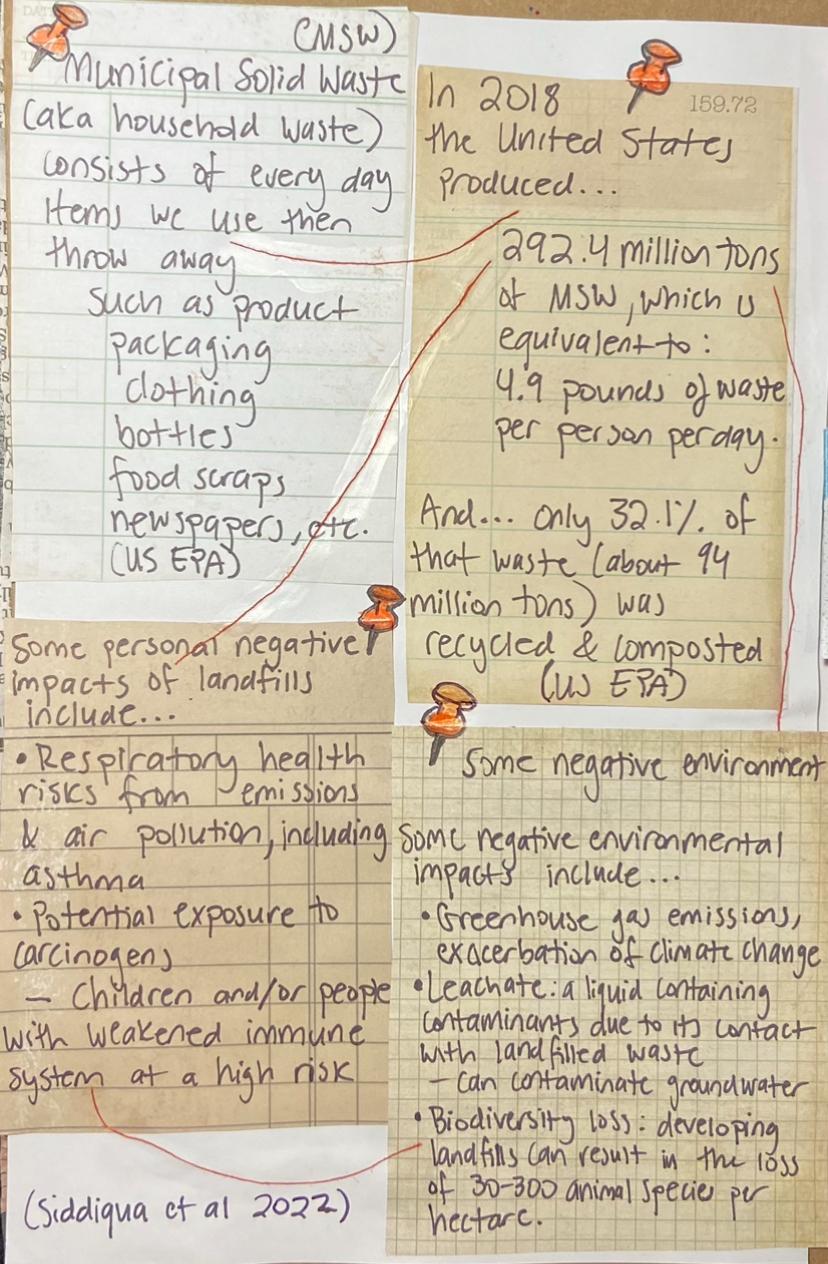 (MSW)
Municipal Solid Waste
(aka household waste)
consists of every day
items we use then
throw away
such as product
packaging
clothing
bottles
food scraps
newspapers, etc.
(US EPA)
In 2018
159.72
the United States
produced...
292.4 million tons
of MSW, which is
equivalent to:
4.9 pounds of waste
per person per day.
And... only 32.1% of
that waste (about 94
million tons) was
recycled & composted
(US EPA)
Some personal negative
impacts of landfills
include...
• Respiratory health
risks from emissions
& air pollution, including
asthma
• Potential exposure to
carcinogens
- Children and/or people
with weakened immune
system at a high risk
(Siddiqua et al 2022)
Some negative environment
Some negative environmental
impacts include...
• Greenhouse gas emissions,
exacerbation of climate change
• Leachate: a liquid containing
contaminants due to its contact
with landfilled waste
- can contaminate groundwater
• Biodiversity loss: developing
landfills can result in the loss
of 30-300 animal species per
hectare.